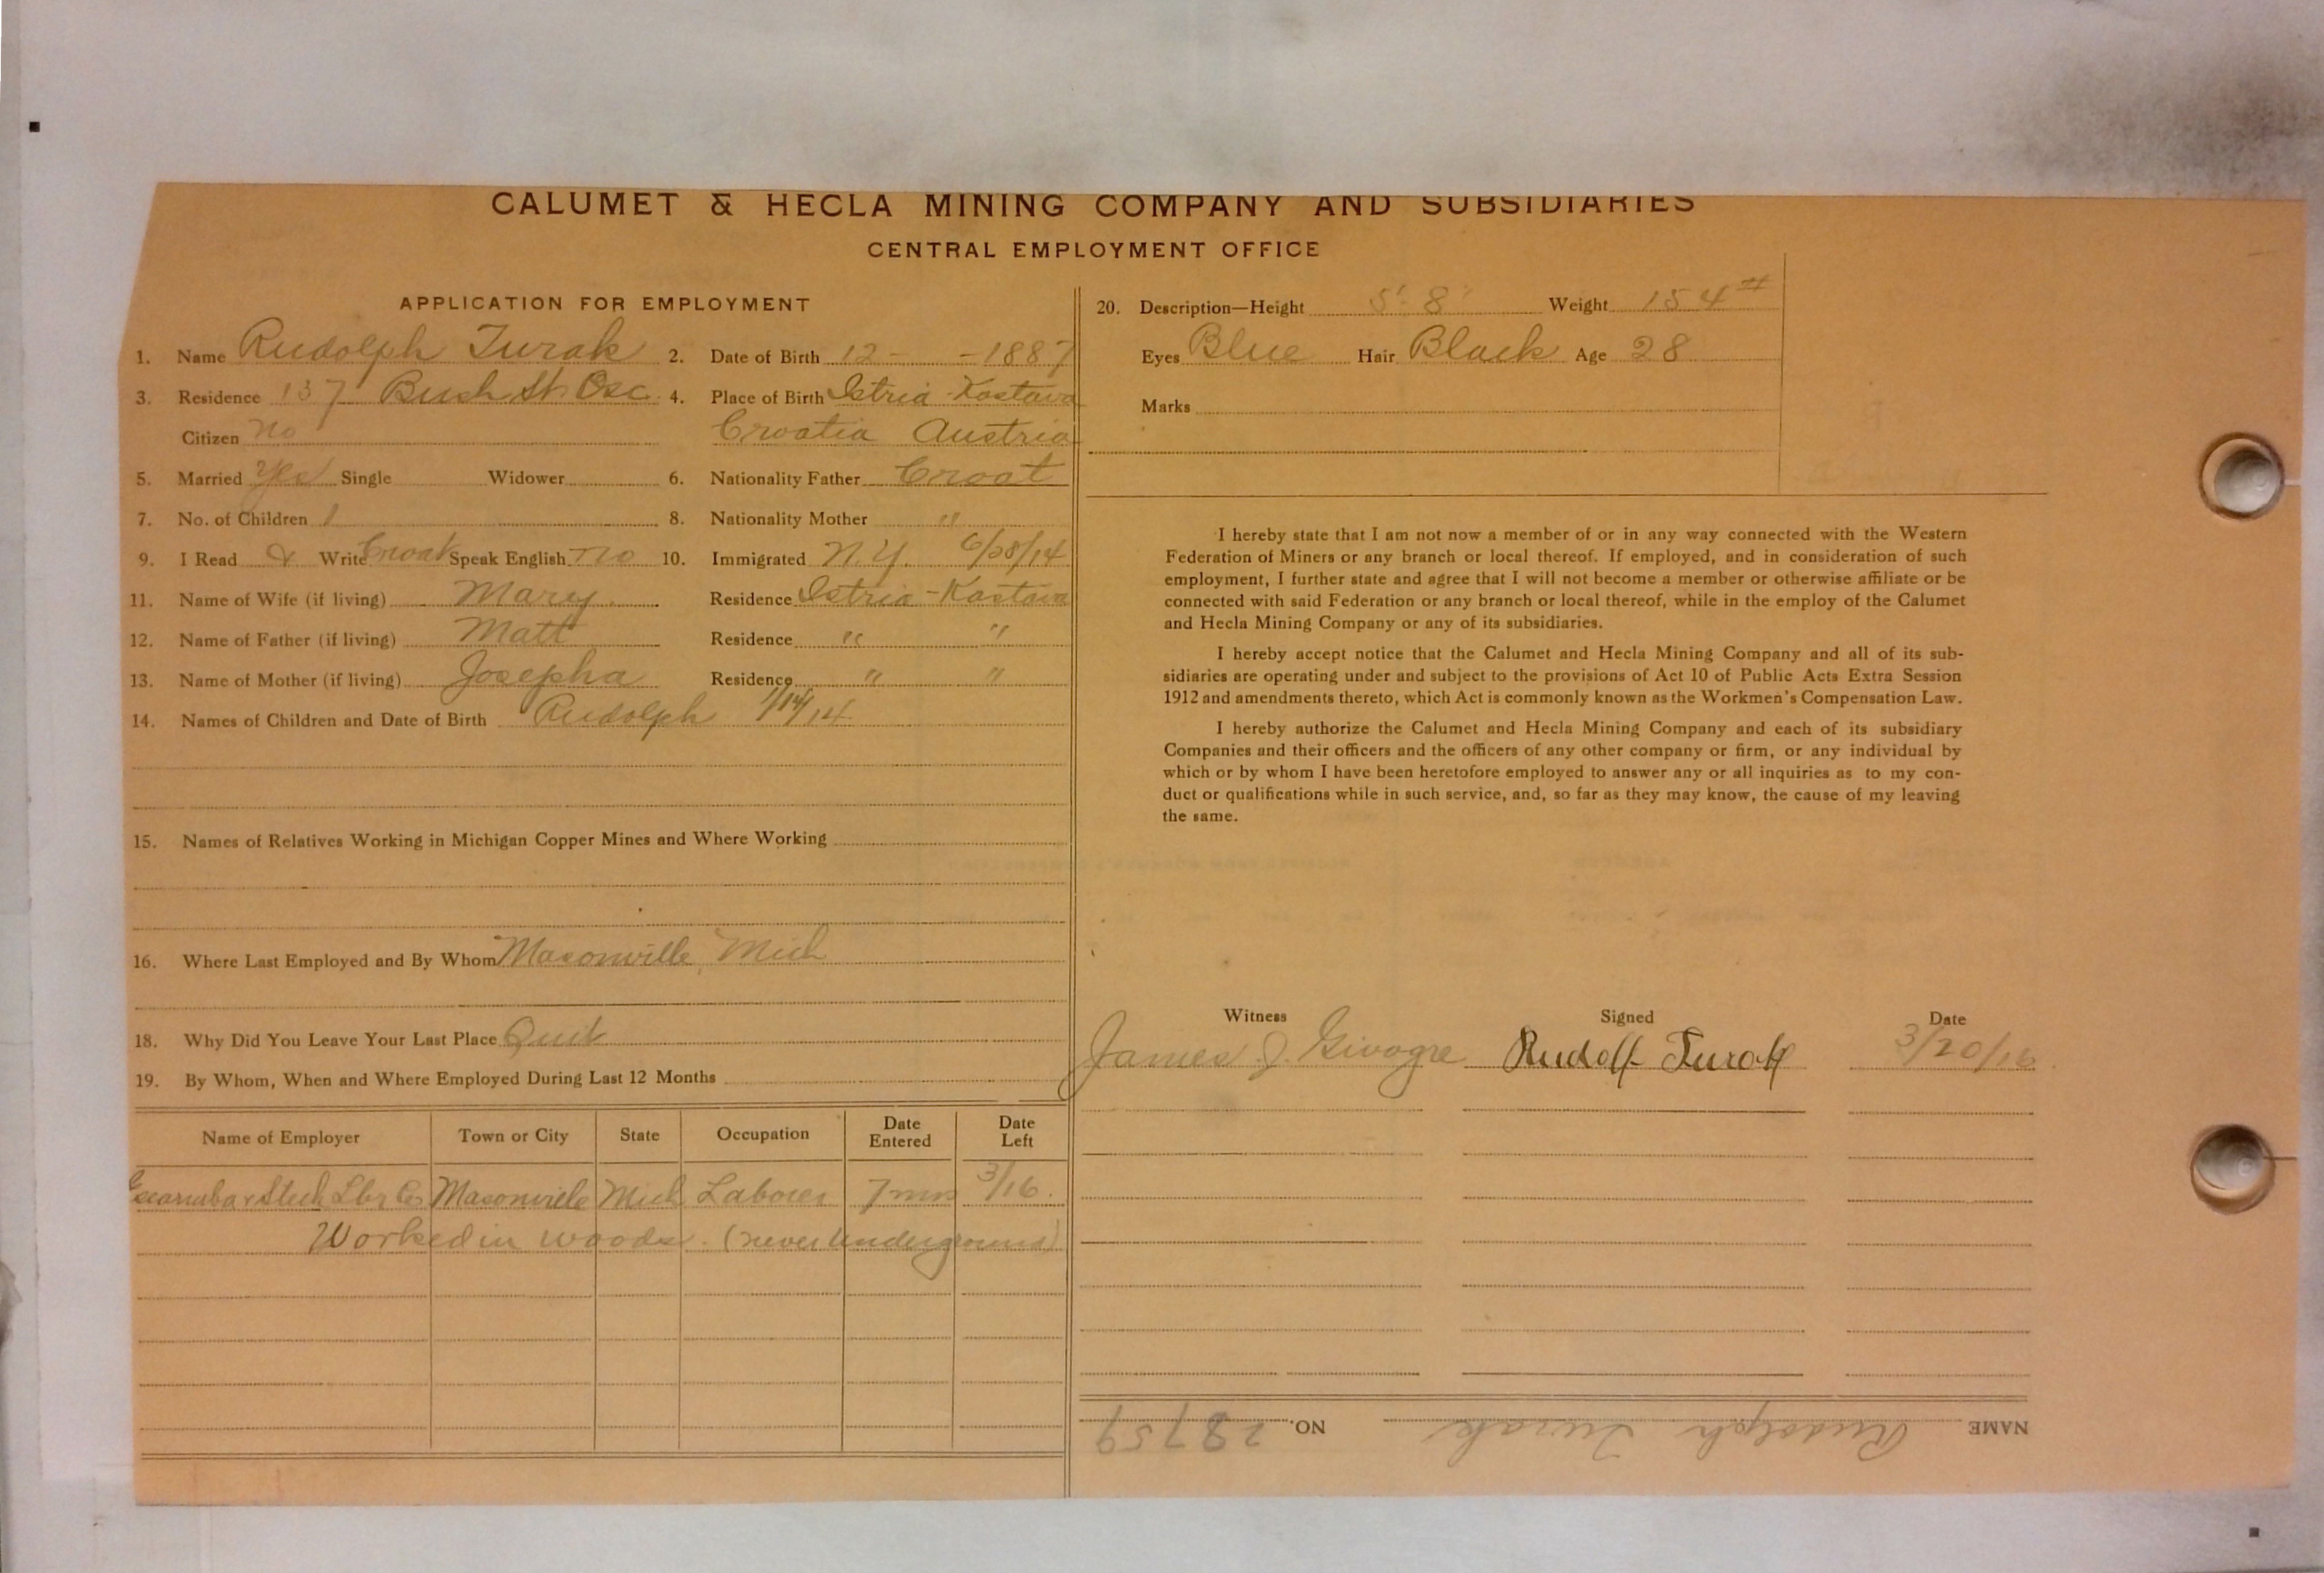 CALUMET & HECLA MINING COMPANY AND SUBSIDIARIES
CENTRAL EMPLOYMENT OFFICE
APPLICATION FOR EMPLOYMENT
1. Name Rudolph Turak 2. Date of Birth 12 - - 1887
3. Residence 137 Bush St. Osc. 4. Place of Birth Istria - Kastava
Citizen no Croatia Austria
5. Married Yes Single Widower 6. Nationality Father Croat
7. No. of Children 1 8. Nationality Mother "
9. I Read & Write Croat Speak English no 10. Immigrated N.Y. 6/28/14
11. Name of Wife (if living) Mary Residence Istria - Kastava
12. Name of Father (if living) Matt Residence " "
13. Name of Mother (if living) Josepha Residence " "
14. Names of Children and Date of Birth Rudolph 1/14/14
15. Names of Relatives Working in Michigan Copper Mines and Where Working
16. Where Last Employed and By Whom Masonville, Mich
18. Why Did You Leave Your Last Place Quit
19. By Whom, When and Where Employed During Last 12 Months
Name of Employer Town or City State Occupation Date Entered Date Left
Lbr Co Masonville Mich Laborer 7 mos 3/16.
Worked in woods. (never underground)
20. Description—Height 5' - 8" Weight 154 #
Eyes Blue Hair Black Age 28
Marks
I hereby state that I am not now a member of or in any way connected with the Western
Federation of Miners or any branch or local thereof. If employed, and in consideration of such
employment, I further state and agree that I will not become a member or otherwise affiliate or be
connected with said Federation or any branch or local thereof, while in the employ of the Calumet
and Hecla Mining Company or any of its subsidiaries.
I hereby accept notice that the Calumet and Hecla Mining Company and all of its sub-
sidiaries are operating under and subject to the provisions of Act 10 of Public Acts Extra Session
1912 and amendments thereto, which Act is commonly known as the Workmen's Compensation Law.
I hereby authorize the Calumet and Hecla Mining Company and each of its subsidiary
Companies and their officers and the officers of any other company or firm, or any individual by
which or by whom I have been heretofore employed to answer any or all inquiries as to my con-
duct or qualifications while in such service, and, so far as they may know, the cause of my leaving
the same.
Witness Signed Date
James J. Rudolf Turak 3/20/16
NAME Rudolph Turak NO. 28759